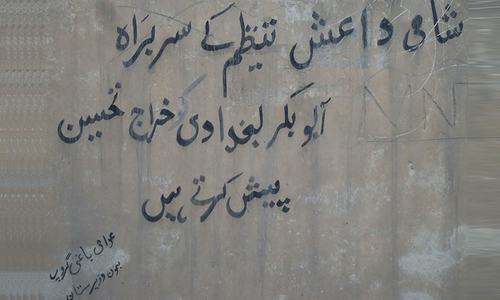 شامی داعش تنظیم کے سربراہ
ابو بکر لبغدادی کو خراج تحسین
پیش کرتے ہیں
عوامی باغی گروپ
بنوں وزیرستان